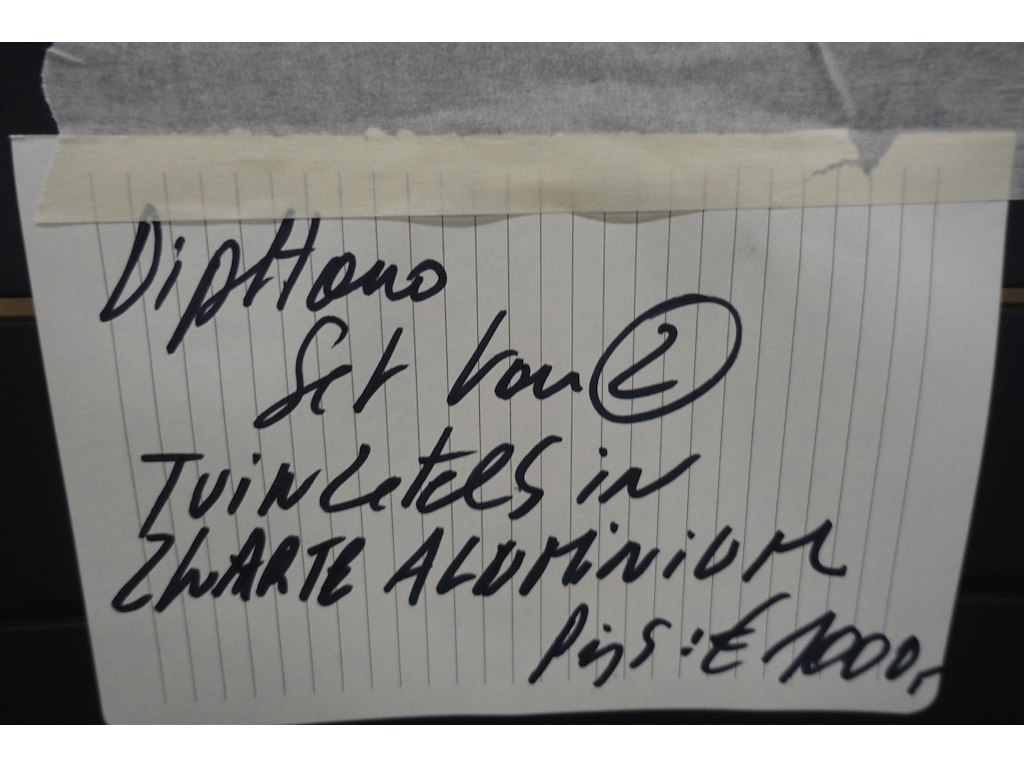 DipHano
Set van 2
TUINZetels in
ZWARTE ALUMINIUM
Prijs : € 1000,-